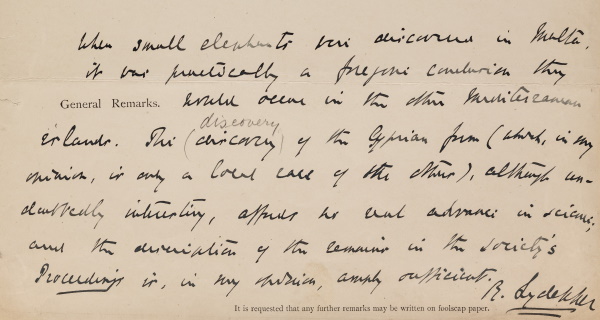 When small elephants were discovered in Malta,
it was practically a foregone conclusion they
General Remarks. would occur in the other Mediterranean
discovery
islands. The (discovery) of the Cyprian form (which, in my
opinion, is only a local race of the others), although un-
doubtedly interesting, affords no real advance in science;
and the description of the remains in the Society's
Proceedings is, in my opinion, amply sufficient.
R. Lydekker
It is requested that any further remarks may be written on foolscap paper.